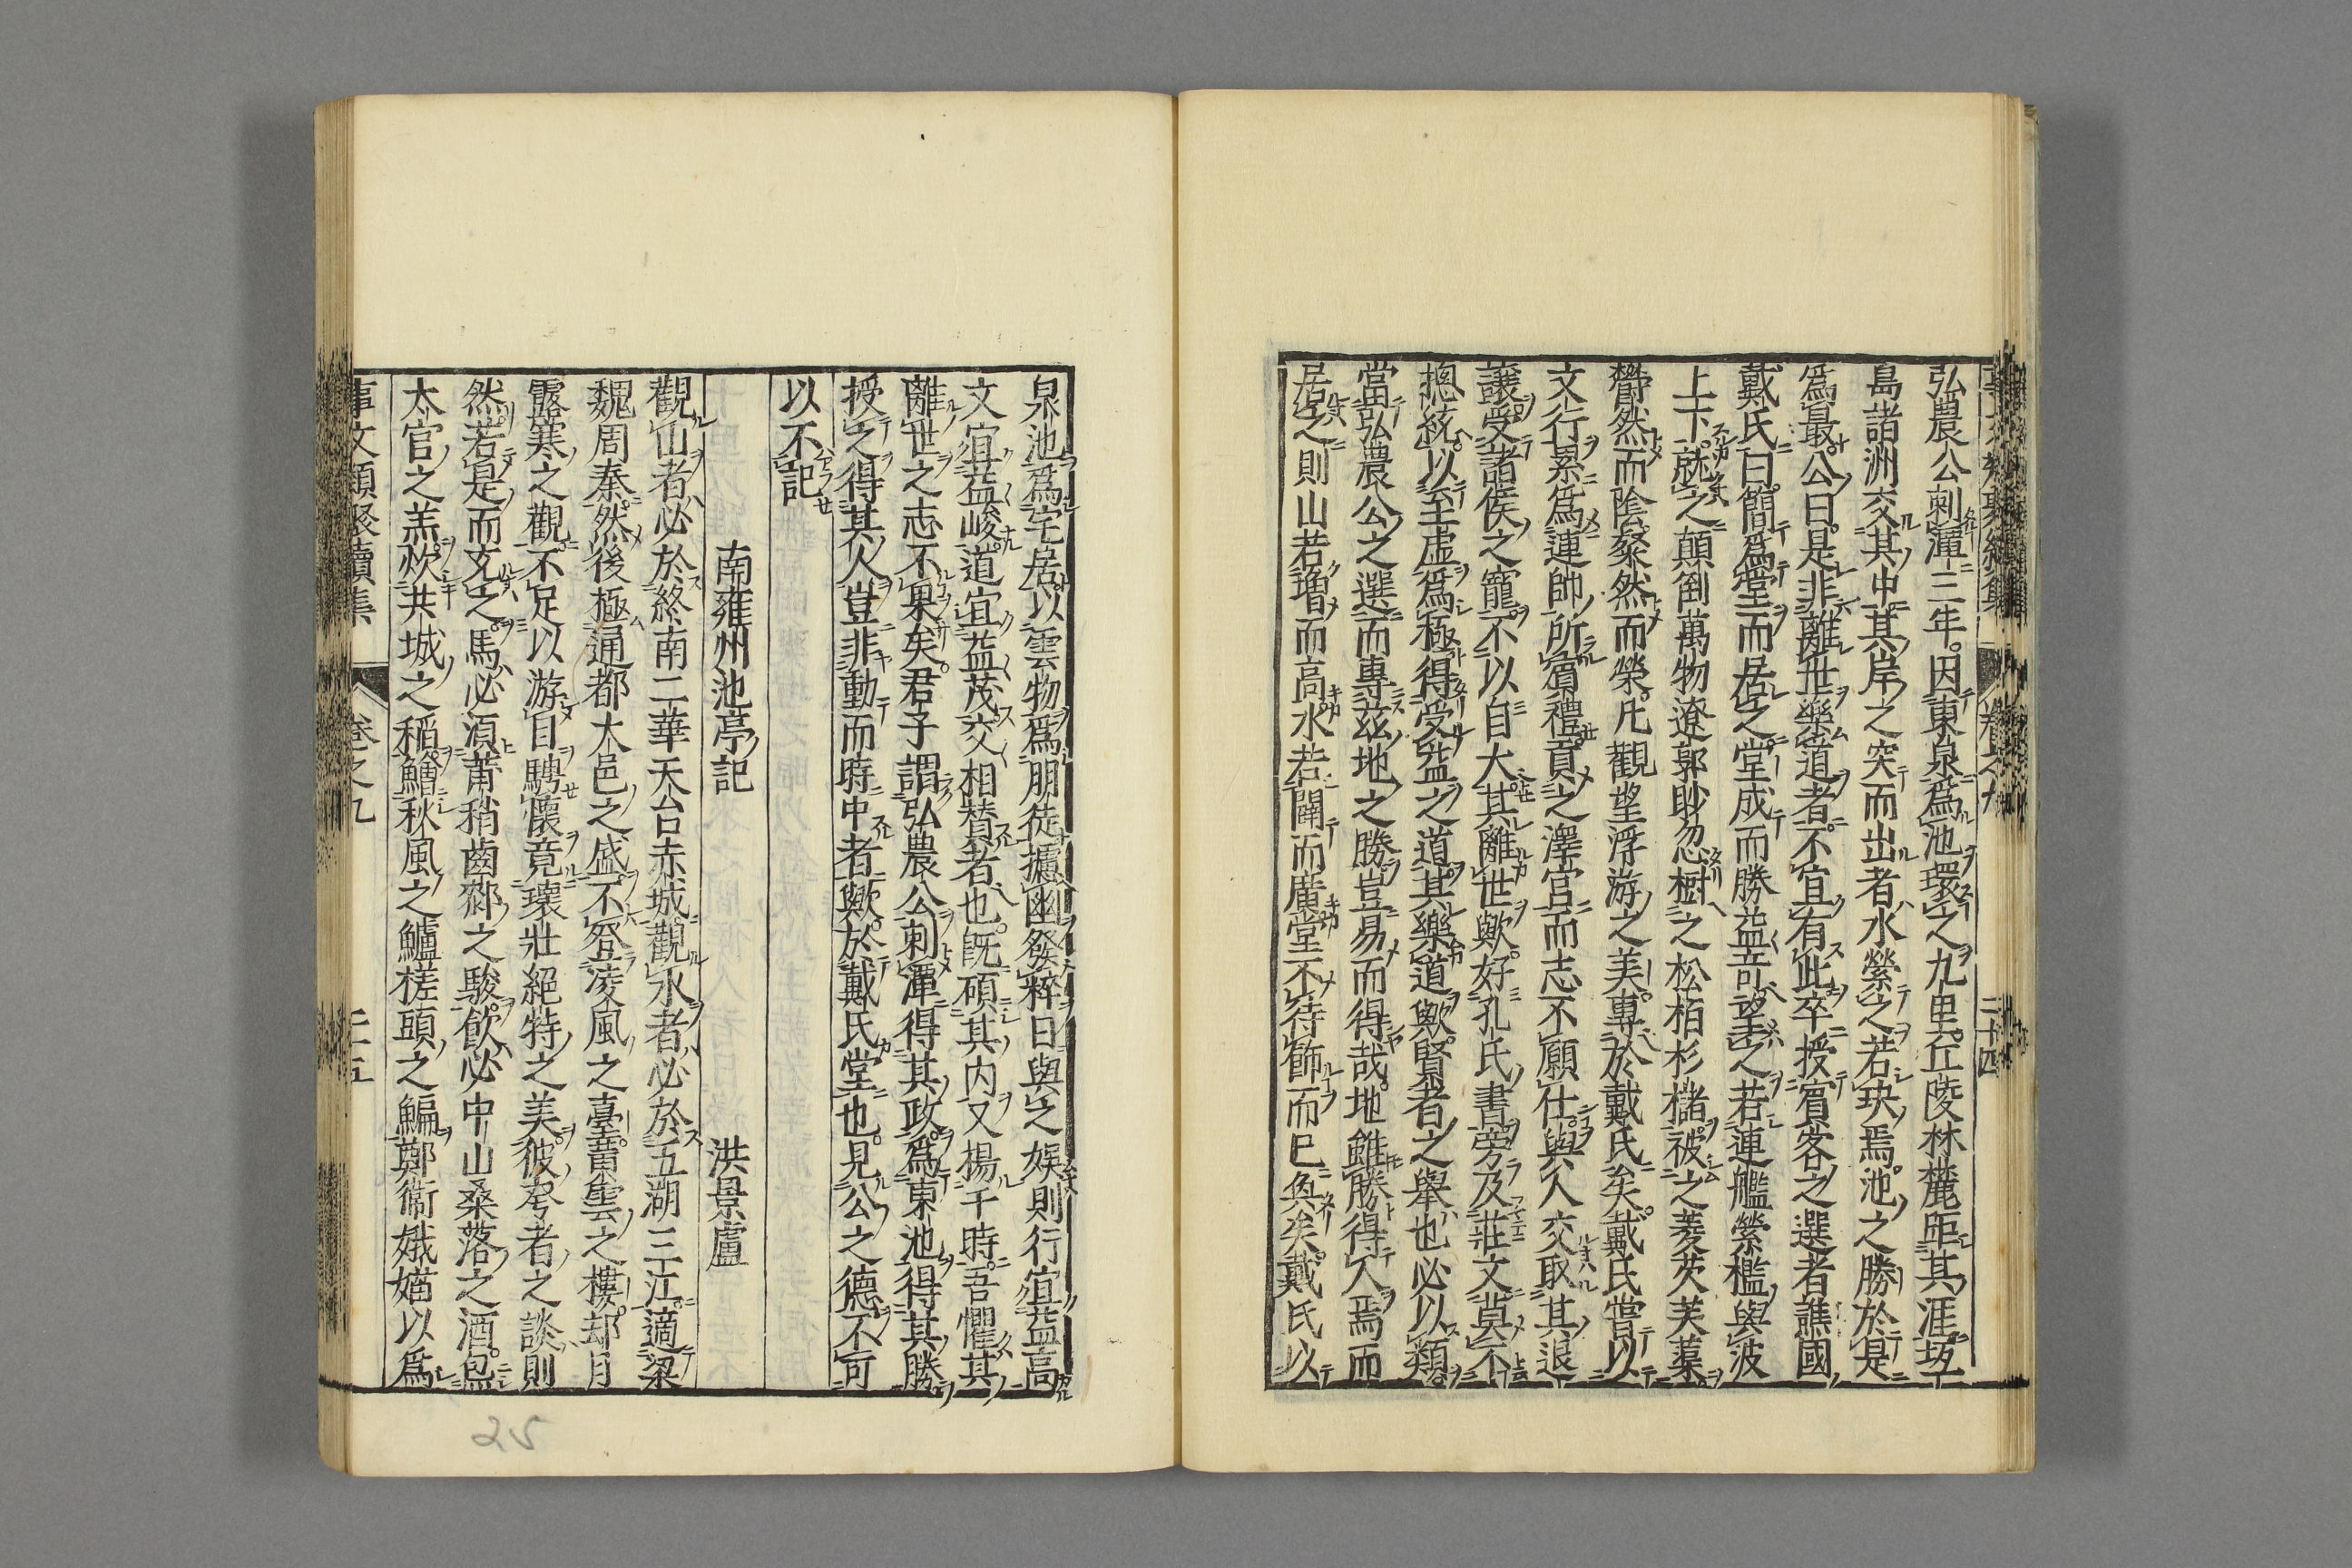 弘農公刺潭三年因東泉爲池環之九里丘陵林麓距其涯坻
島諸洲交其中其岸之突而出者水縈之若玦焉池之勝於是
爲最公曰是非離世樂道者不宜有此卒授賔客之選者譙國
戴氏曰簡爲堂而居之堂成而勝益竒望之若連艫縈檻與波
上下就之顛倒萬物遼郭眇忽樹之松柏杉櫧被之菱芡芙蕖
欝然而陰粲然而榮凡觀望浮游之美專於戴氏矣戴氏嘗以
文行累爲連帥所賔禮貢之澤宮而志不願仕與人交取其退
讓受諸侯之寵不以自大其離世歟好孔氏書旁及莊文莫不
揔統以至虚爲極得受益之道其樂道歟賢者之舉也必以類
當弘農公之選而專茲地之勝豈易而得哉地雖勝得人焉而
居之則山若增而高水若闢而廣堂不待飾而已奐矣戴氏以
泉池爲宅居以雲物爲朋徒攄幽發粹日與之娱則行宜益高
文宜益峻道宜益茂交相賛者也既碩其内又揚于時吾懼其
離世之志不果矣君子謂弘農公刺潭得其政爲東池得其勝
授之得其人豈非動而時中者歟於戴氏堂也見公之德不可
以不記
南雍州池亭記 洪景盧
觀山者必於終南二華天台赤城觀水者必於五湖三江適梁
魏周秦然後極通都大邑之盛不登凌風之臺黄雲之樓却月
露寒之觀不足以游目騁懷竟瓌壯絕特之美彼夸者之談則
然若是而文之馬必須莆稍齒鄴之駿飮必中山桑落之酒包
太官之羔炊共城之稻鱠秋風之鱸槎頭之鯿鄭衞娥嫱以爲
事文類聚續集 卷之九 二十五